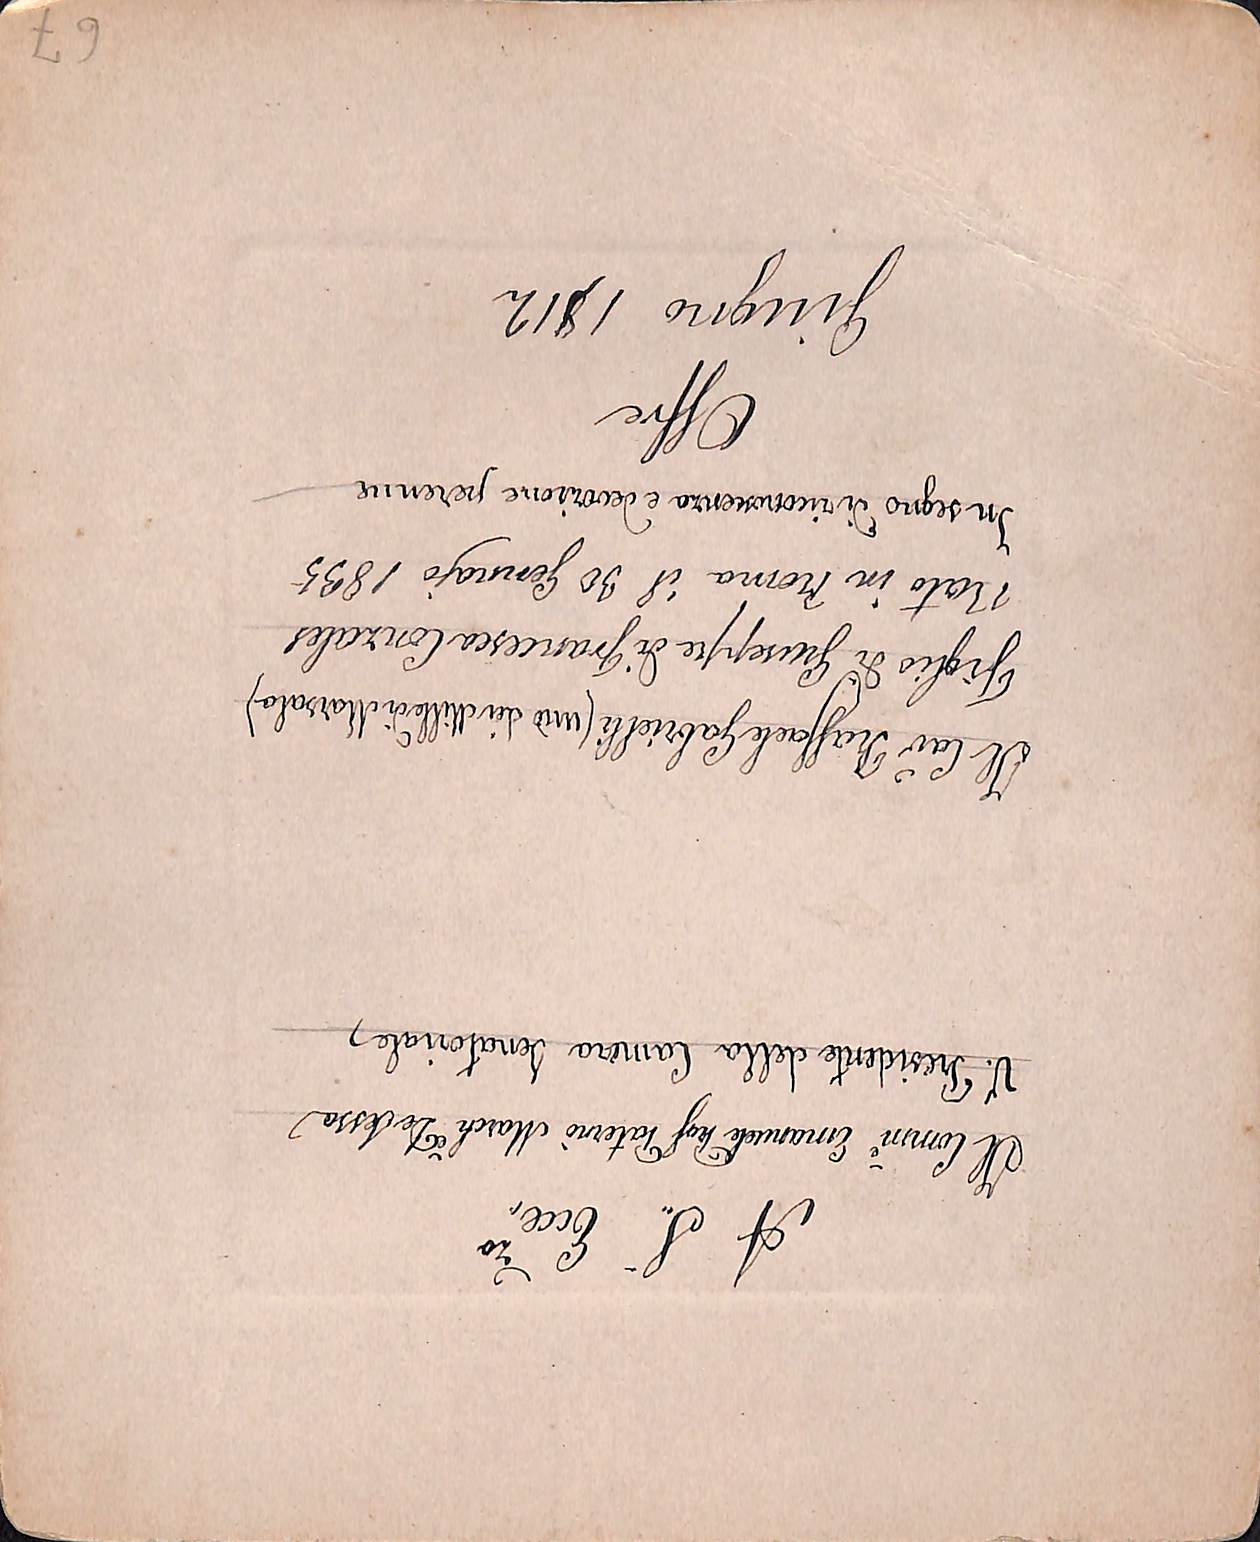 A S. Ecc.za
Il Comm.e Emanuele Prof Paternò March.e De Sessa
V. Presidente della Camera Senatoriale,
Il Cav Raffaele Gabrielli (uno dei Mille di Marsala)
Figlio di Giuseppe di Francesca Conzales
Nato in Roma il 30 Gennajo 1835
In segno di riconoscenza e devozione perenne
Offre
Giugno 1912
67